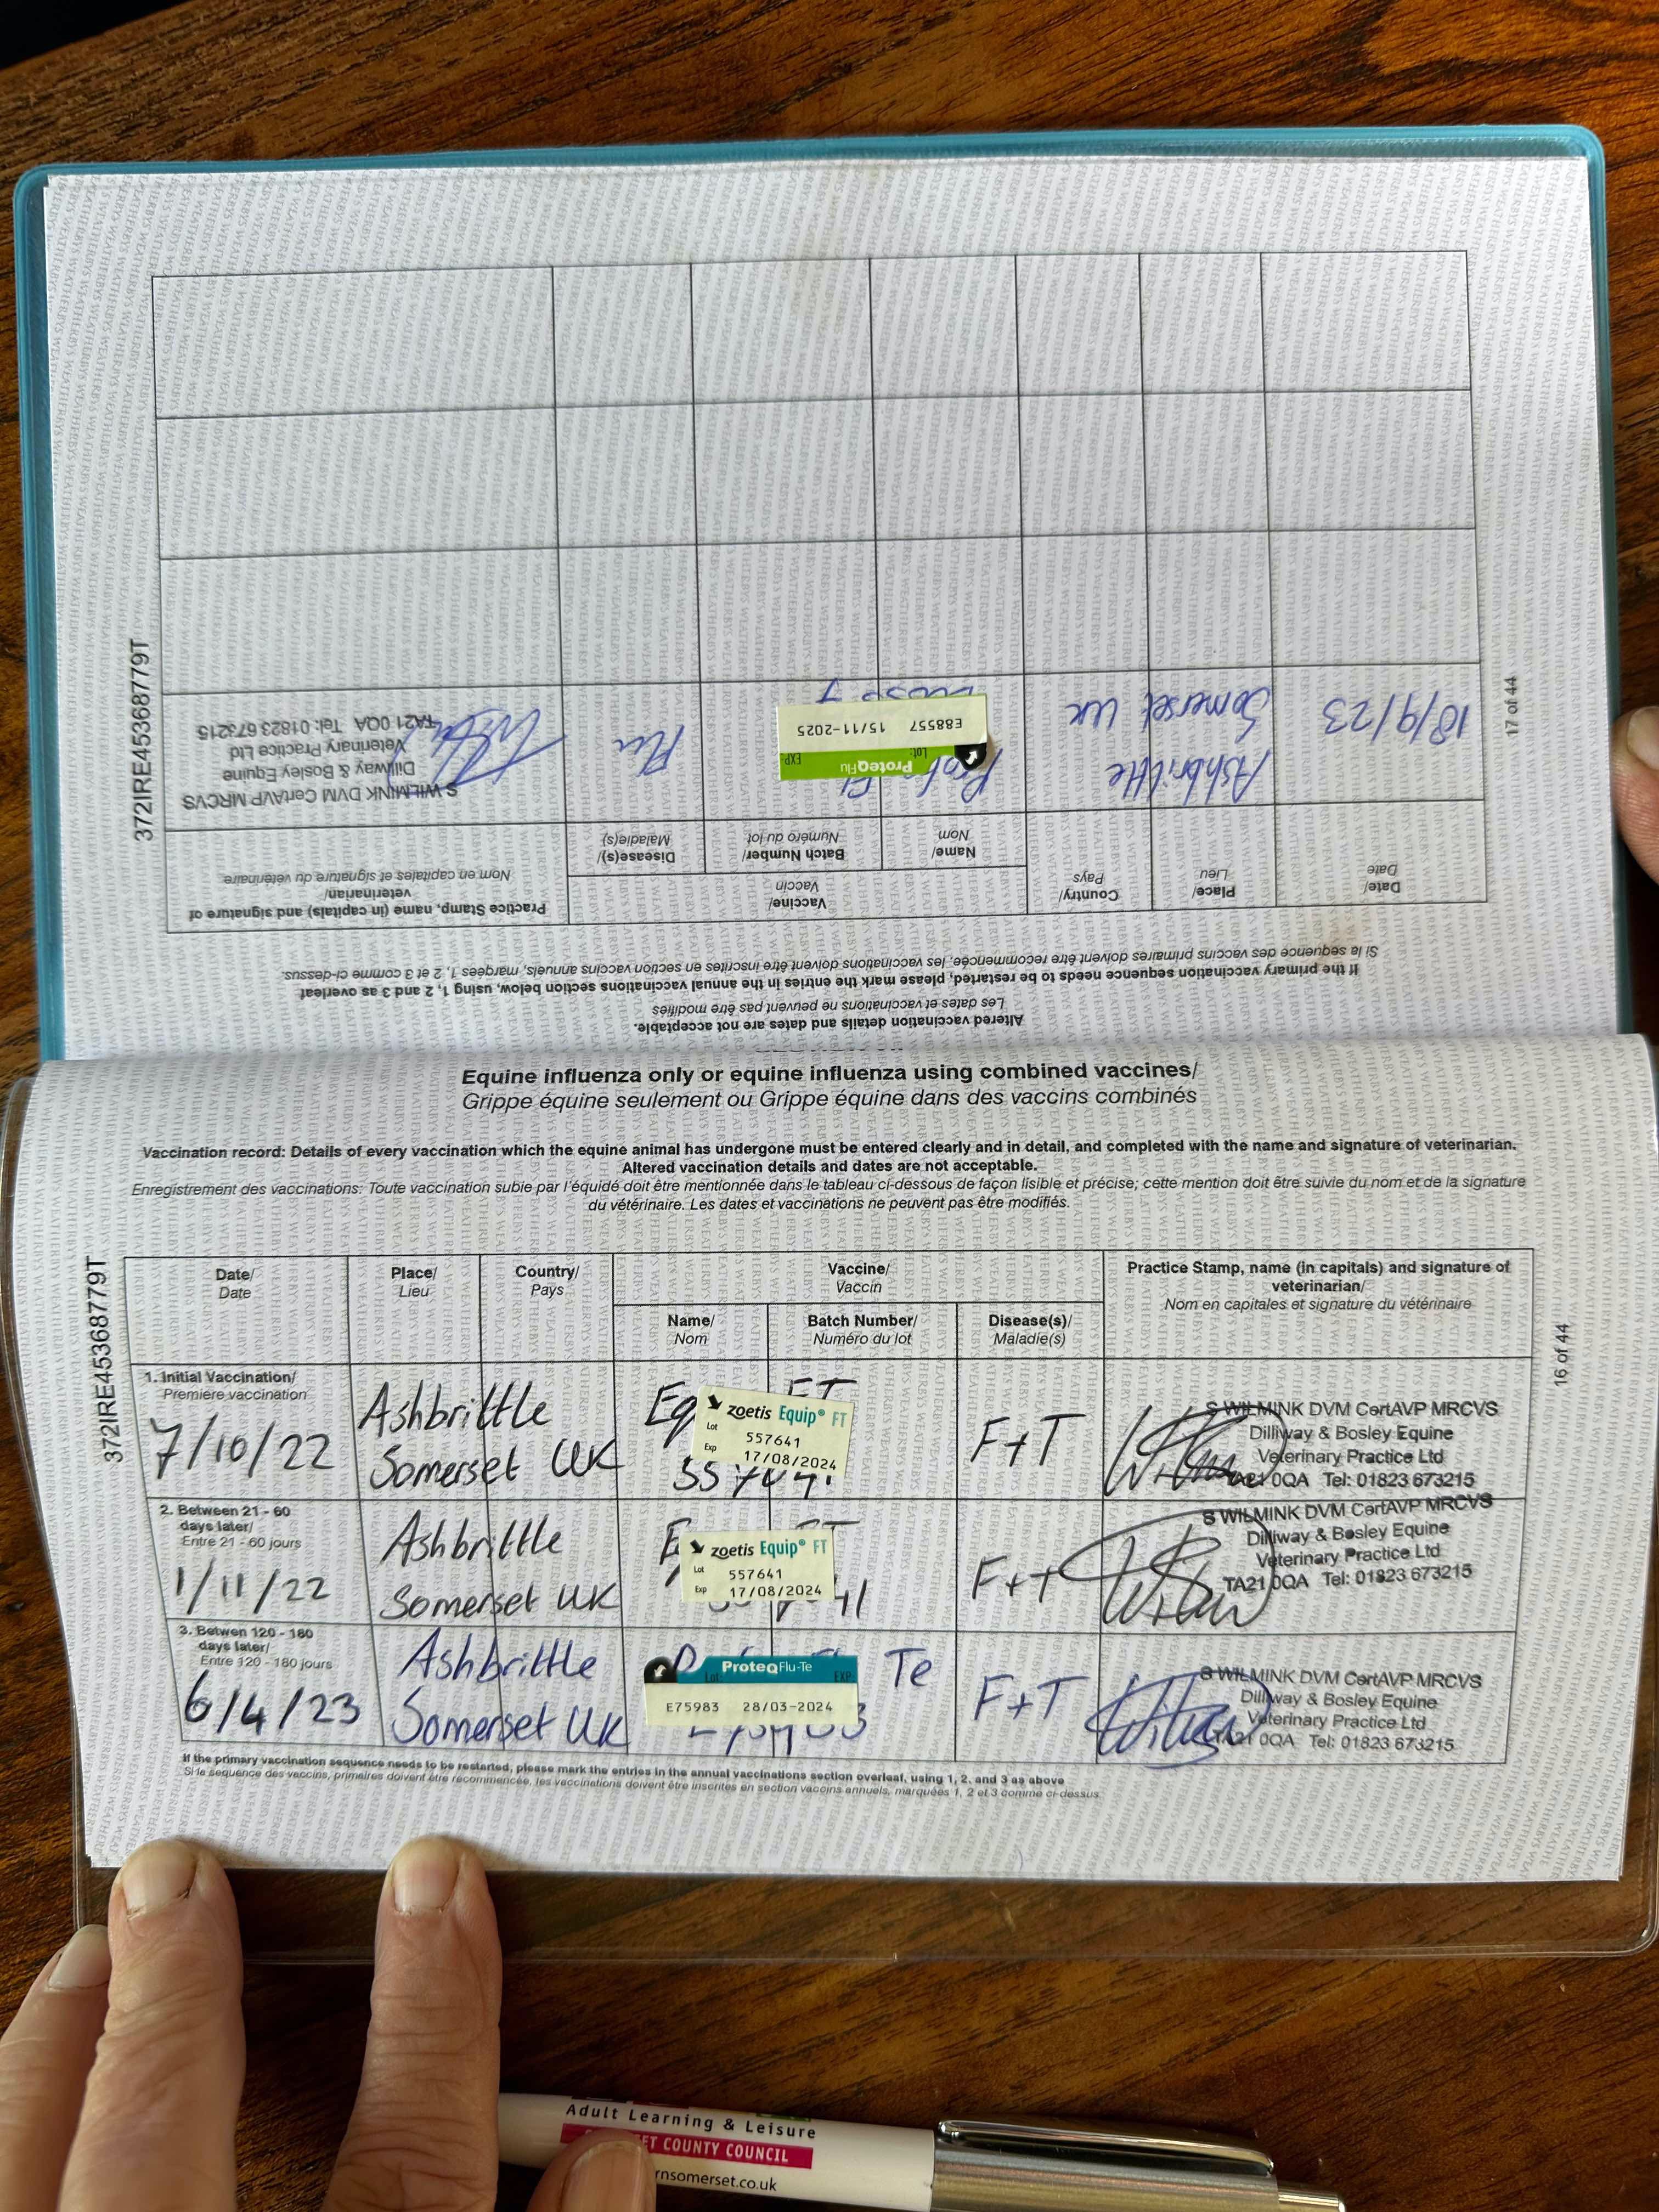 Equine influenza only or equine influenza using combined vaccines/
Grippe équine seulement ou Grippe équine dans des vaccins combinés
Vaccination record: Details of every vaccination which the equine animal has undergone must be entered clearly and in detail, and completed with the name and signature of veterinarian.
Altered vaccination details and dates are not acceptable.
Enregistrement des vaccinations: Toute vaccination subie par l'équidé doit être mentionnée dans le tableau ci-dessous de façon lisible et précise; cette mention doit être suivie du nom et de la signature
du vétérinaire. Les dates et vaccinations ne peuvent pas être modifiés.
372IRE45368779T
16 of 44
Date/
Date
Place/
Lieu
Country/
Pays
Vaccine/
Vaccin
Name/
Nom
Batch Number/
Numéro du lot
Disease(s)/
Maladie(s)
Practice Stamp, name (in capitals) and signature of
veterinarian/
Nom en capitales et signature du vétérinaire
1. Initial Vaccination/
Première vaccination
7/10/22
Ashbrittle
Somerset UK
zoetis Equip® FT
Lot 557641
Exp 17/08/2024
F+T
S WILMINK DVM CertAVP MRCVS
Dilliway & Bosley Equine
Veterinary Practice Ltd
TA21 0QA Tel: 01823 673215
2. Between 21 - 60
days later/
Entre 21 - 60 jours
1/11/22
Ashbrittle
Somerset UK
zoetis Equip® FT
Lot 557641
Exp 17/08/2024
F+T
S WILMINK DVM CertAVP MRCVS
Dilliway & Bosley Equine
Veterinary Practice Ltd
TA21 0QA Tel: 01823 673215
3. Betwen 120 - 180
days later/
Entre 120 - 180 jours
6/4/23
Ashbrittle
Somerset UK
ProteqFlu-Te
Lot: EXP:
E75983 28/03-2024
Te
F+T
S WILMINK DVM CertAVP MRCVS
Dilliway & Bosley Equine
Veterinary Practice Ltd
TA21 0QA Tel: 01823 673215
If the primary vaccination sequence needs to be restarted, please mark the entries in the annual vaccinations section overleaf, using 1, 2, and 3 as above
Si le sequence des vaccins, primaires doivent être recommencée, les vaccinations doivent être inscrites en section vaccins annuels, marquées 1, 2 et 3 comme ci-dessus
Altered vaccination details and dates are not acceptable.
Les dates et vaccinations ne peuvent pas être modifiés
If the primary vaccination sequence needs to be restarted, please mark the entries in the annual vaccinations section below, using 1, 2 and 3 as overleaf
Si la sequence des vaccins primaires doivent être recommencée, les vaccinations doivent être inscrites en section vaccins annuels, marquées 1, 2 et 3 comme ci-dessus.
372IRE45368779T
17 of 44
Date/
Date
Place/
Lieu
Country/
Pays
Vaccine/
Vaccin
Name/
Nom
Batch Number/
Numéro du lot
Disease(s)/
Maladie(s)
Practice Stamp, name (in capitals) and signature of
veterinarian/
Nom en capitales et signature du vétérinaire
18/9/23
Ashbrittle
Somerset UK
ProteqFlu
Lot: EXP
E88557 15/11-2025
Flu
S WILMINK DVM CertAVP MRCVS
Dilliway & Bosley Equine
Veterinary Practice Ltd
TA21 0QA Tel: 01823 673215
Adult Learning & Leisure
COUNTY COUNCIL